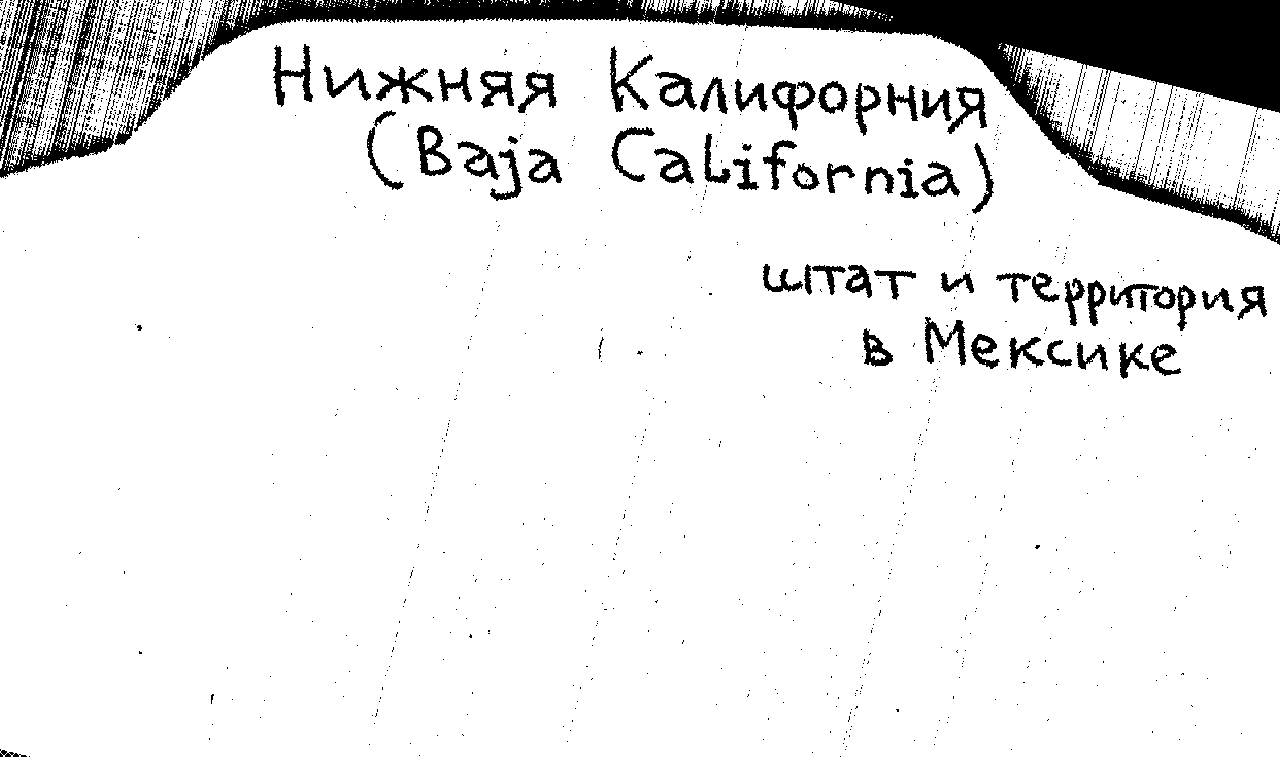 Нижняя Калифорния
(Baja California)
штат и территория
в Мексике